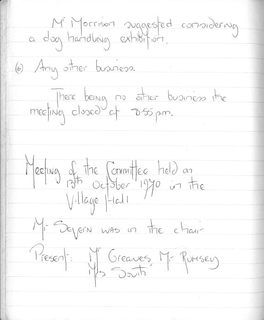 Mr Morrison suggested considering
a dog handling exhibition.
(6) Any other business.
There being no other business the
meeting closed at 8.55pm.
Meeting of the Committee held on
13th October 1970 in the
Village Hall
Mr Severn was in the chair
Present: Mr Greaves Mr Rumsey
Mrs South